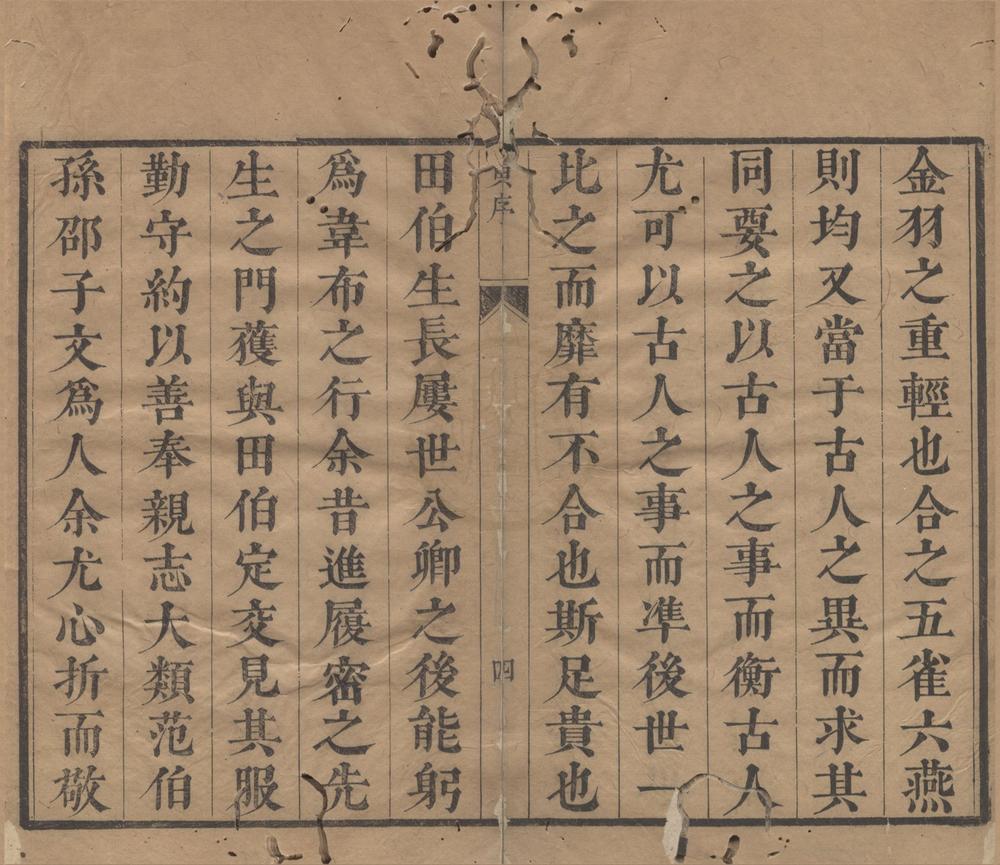 金羽之重輕也合之五雀六燕
則均又當于古人之異而求其
同要之以古人之事而衡古人
尤可以古人之事而準後世一
比之而靡有不合也斯足貴也
序
四
田伯生長屢世公卿之後能躬
爲韋布之行余昔進履密之先
生之門獲與田伯定交見其服
勤守約以善奉親志大類范伯
孫邵子文爲人余尤心折而敬